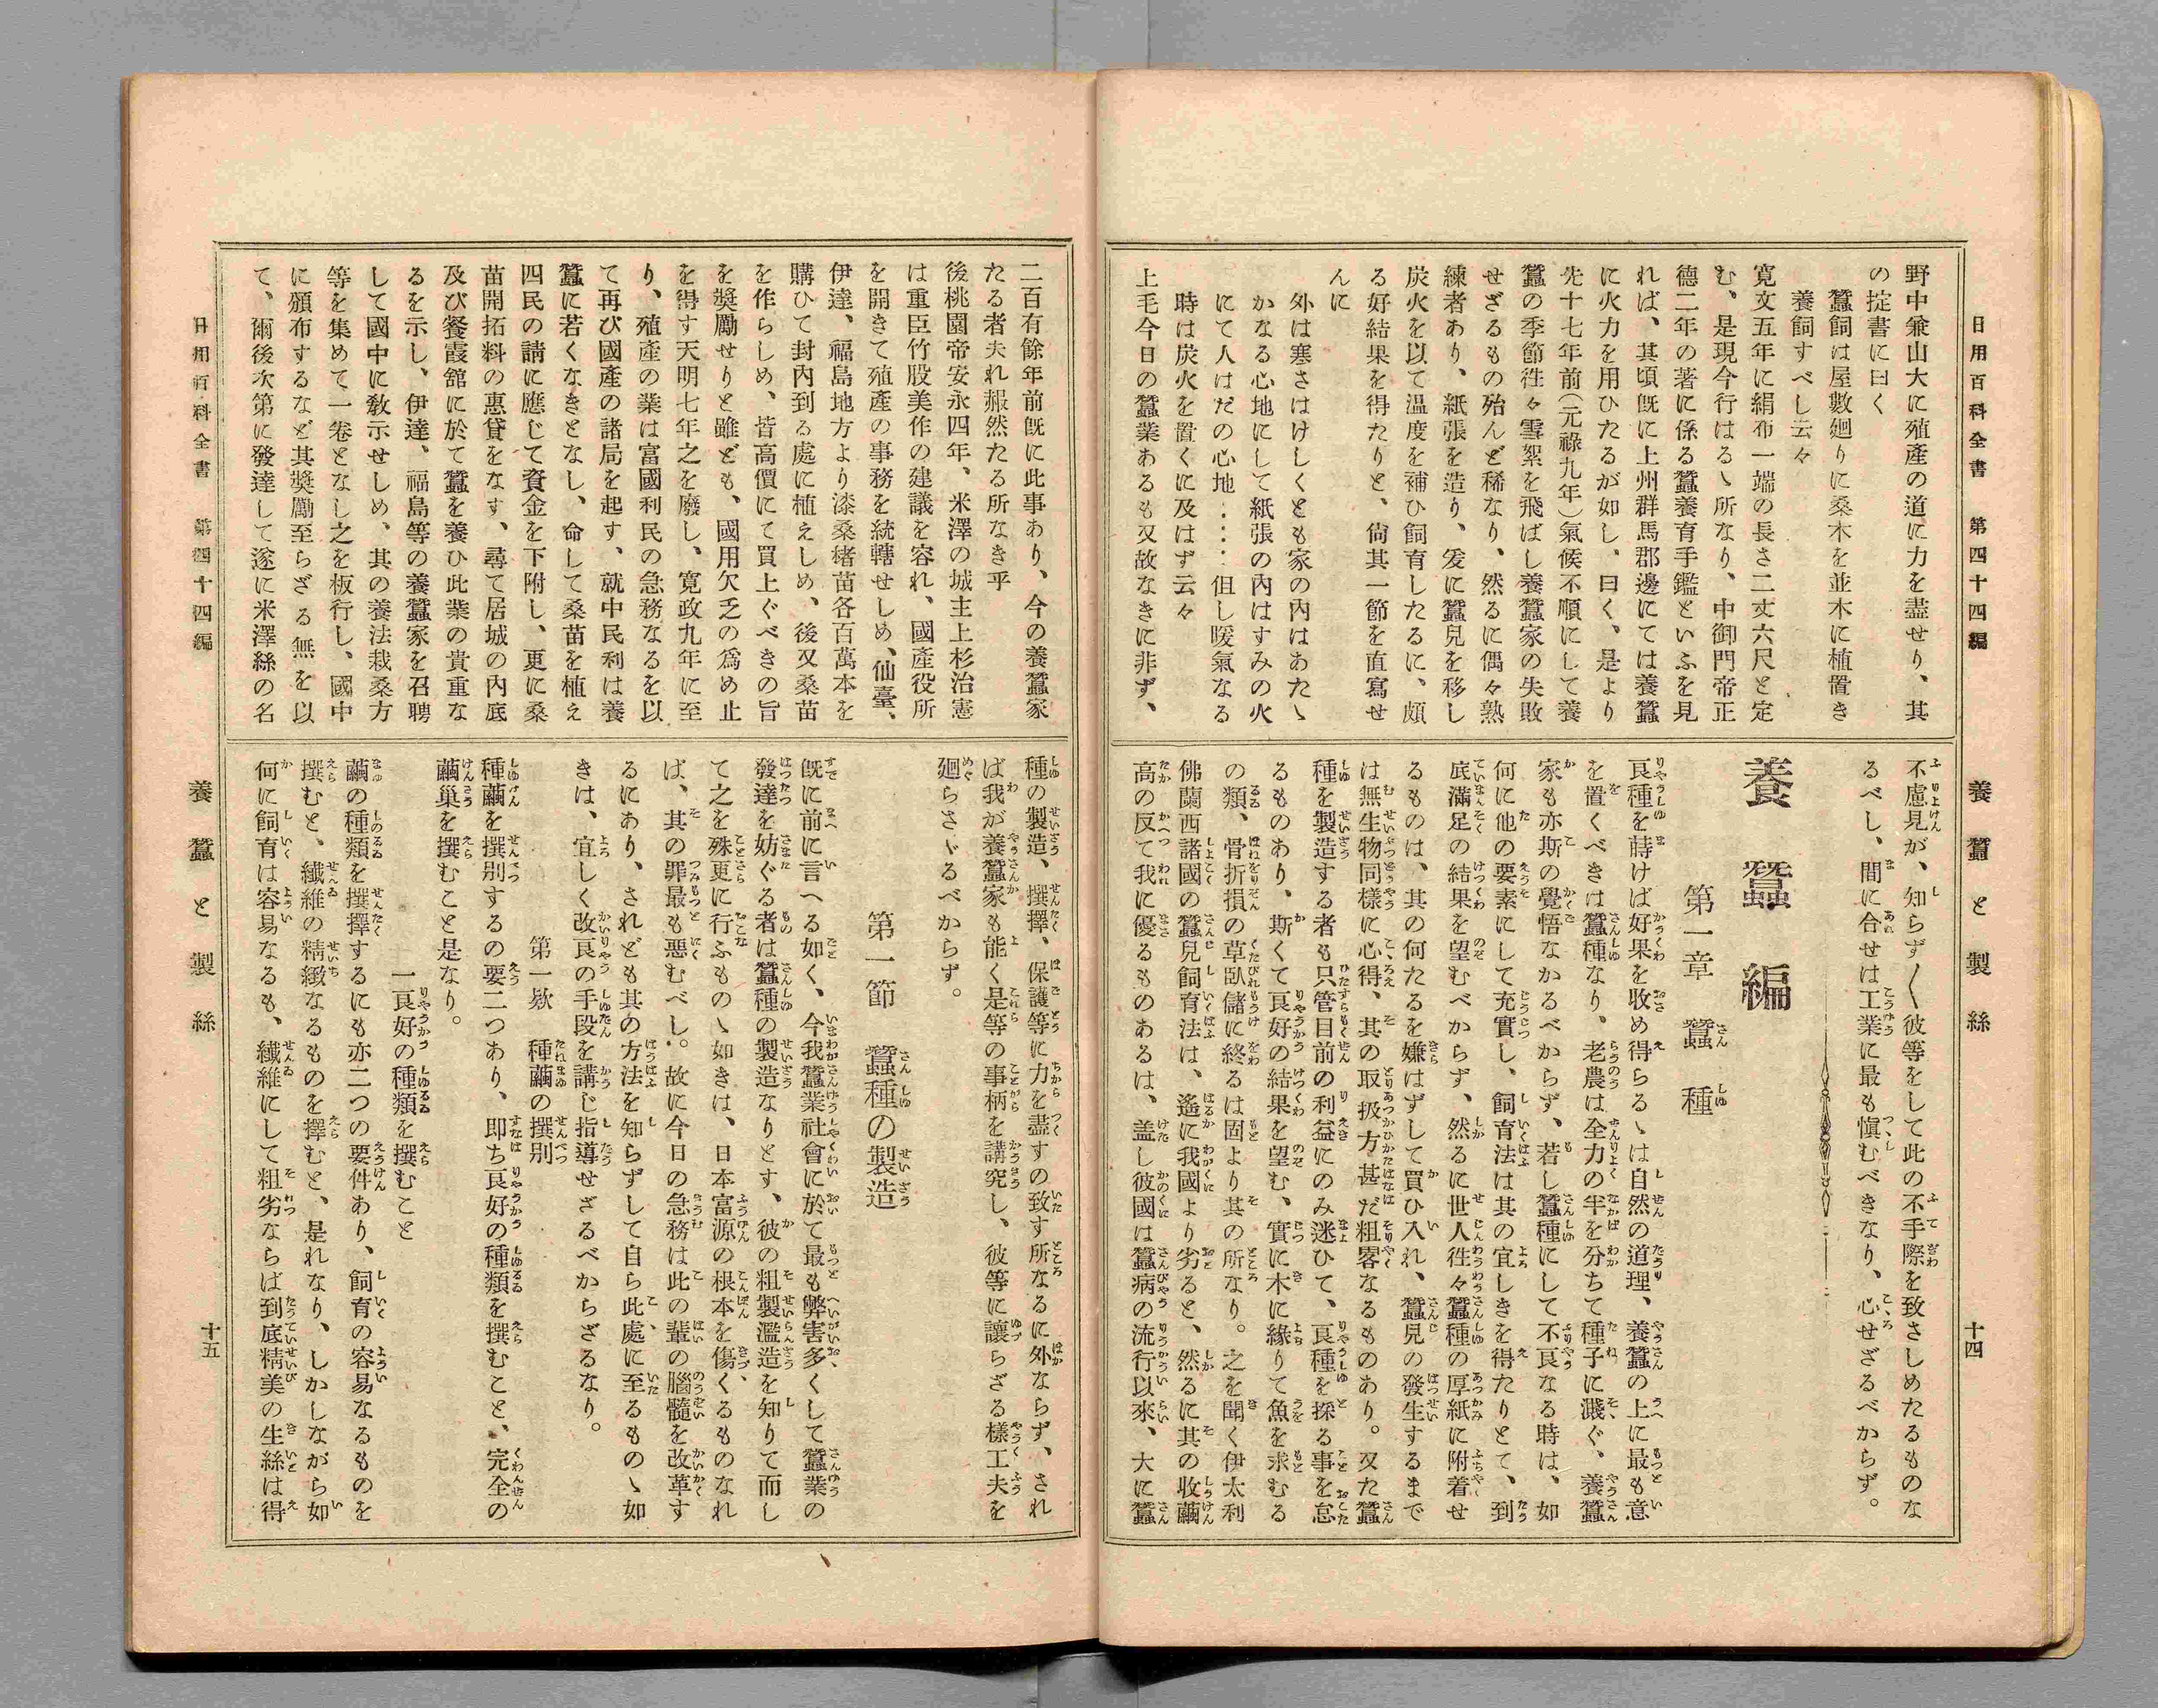 日用百科全書　第四十四編
養蠶と製絲
十四
野中兼山大に殖産の道に力を盡せり、其
の掟書に曰く
蠶飼は屋敷廻りに桑木を並木に植置き
養飼すべし云々
寛文五年に絹布一端の長さ二丈六尺と定
む、是現今行はるゝ所なり、中御門帝正
德二年の著に係る蠶養育手鑑といふを見
れば、其頃既に上州群馬郡邊にては養蠶
に火力を用ひたるが如し、曰く、是より
先十七年前(元祿九年)氣候不順にして養
蠶の季節徃々雪絮を飛ばし養蠶家の失敗
せざるもの殆んど稀なり、然るに偶々熟
練者あり、紙張を造り、爰に蠶兒を移し
炭火を以て温度を補ひ飼育したるに、頗
る好結果を得たりと、尙其一節を直寫せ
んに
外は寒さはけしくとも家の內はあたゝ
かなる心地にして紙張の內はすみの火
にて人はだの心地‥‥但し暖氣なる
時は炭火を置くに及はず云々
上毛今日の蠶業あるも又故なきに非ず、
不慮見が、知らず〱彼等をして此の不手際を致さしめたるものな
るべし、間に合せは工業に最も愼むべきなり、心せざるべからず。
養蠶編
第一章　蠶種
良種を蒔けば好果を收め得らるゝは自然の道理、養蠶の上に最も意
を置くべきは蠶種なり、老農は全力の半を分ちて種子に濺ぐ、養蠶
家も亦斯の覺悟なかるべからず、若し蠶種にして不良なる時は、如
何に他の要素にして充實し、飼育法は其の宜しきを得たりとて、到
底滿足の結果を望むべからず、然るに世人徃々蠶種の厚紙に附着せ
るものは、其の何たるを嫌はずして買ひ入れ、蠶兒の發生するまで
は無生物同樣に心得、其の取扱方甚だ粗畧なるものあり。又た蠶
種を製造する者も只管目前の利益にのみ迷ひて、良種を採る事を怠
るものあり、斯くて良好の結果を望む、實に木に緣りて魚を求むる
の類、骨折損の草臥儲に終るは固より其の所なり。之を聞く伊太利
佛蘭西諸國の蠶兒飼育法は、遙に我國より劣ると、然るに其の收繭
高の反て我に優るものあるは、盖し彼國は蠶病の流行以來、大に蠶
二百有餘年前既に此事あり、今の養蠶家
たる者夫れ赧然たる所なき乎
後桃園帝安永四年、米澤の城主上杉治憲
は重臣竹股美作の建議を容れ、國產役所
を開きて殖產の事務を統轄せしめ、仙臺、
伊達、福島地方より漆桑楮苗各百萬本を
購ひて封內到る處に植えしめ、後又桑苗
を作らしめ、皆高價にて買上ぐべきの旨
を奬勵せりと雖ども、國用欠乏の爲め止
を得す天明七年之を廢し、寬政九年に至
り、殖產の業は富國利民の急務なるを以
て再び國產の諸局を起す、就中民利は養
蠶に若くなきとなし、命して桑苗を植え
四民の請に應じて資金を下附し、更に桑
苗開拓料の惠貸をなす、尋て居城の內底
及び餐霞舘に於て蠶を養ひ此業の貴重な
るを示し、伊達、福島等の養蠶家を召聘
して國中に敎示せしめ、其の養法栽桑方
等を集めて一卷となし之を板行し、國中
に頒布するなど其奬勵至らざる無を以
て、爾後次第に發達して遂に米澤絲の名
種の製造、撰擇、保護等に力を盡すの致す所なるに外ならず、され
ば我が養蠶家も能く是等の事柄を講究し、彼等に讓らざる樣工夫を
廻らさゞるべからず。
第一節　蠶種の製造
既に前に言へる如く、今我蠶業社會に於て最も弊害多くして蠶業の
發達を妨ぐる者は蠶種の製造なりとす、彼の粗製濫造を知りて而し
て之を殊更に行ふものゝ如きは、日本富源の根本を傷くるものなれ
ば、其の罪最も惡むべし。故に今日の急務は此の輩の腦髓を改革す
るにあり、されども其の方法を知らずして自ら此處に至るものゝ如
きは、宜しく改良の手段を講じ指導せざるべからざるなり。
第一欵　種繭の撰別
種繭を撰別するの要二つあり、卽ち良好の種類を撰むこと、完全の
繭巢を撰むこと是なり。
一良好の種類を撰むこと
繭の種類を撰擇するにも亦二つの要件あり、飼育の容易なるものを
撰むと、纎維の精緻なるものを擇むと、是れなり、しかしながら如
何に飼育は容易なるも、纎維にして粗劣ならば到底精美の生絲は得
日用百科全書　第四十四編
養蠶と製絲
十五